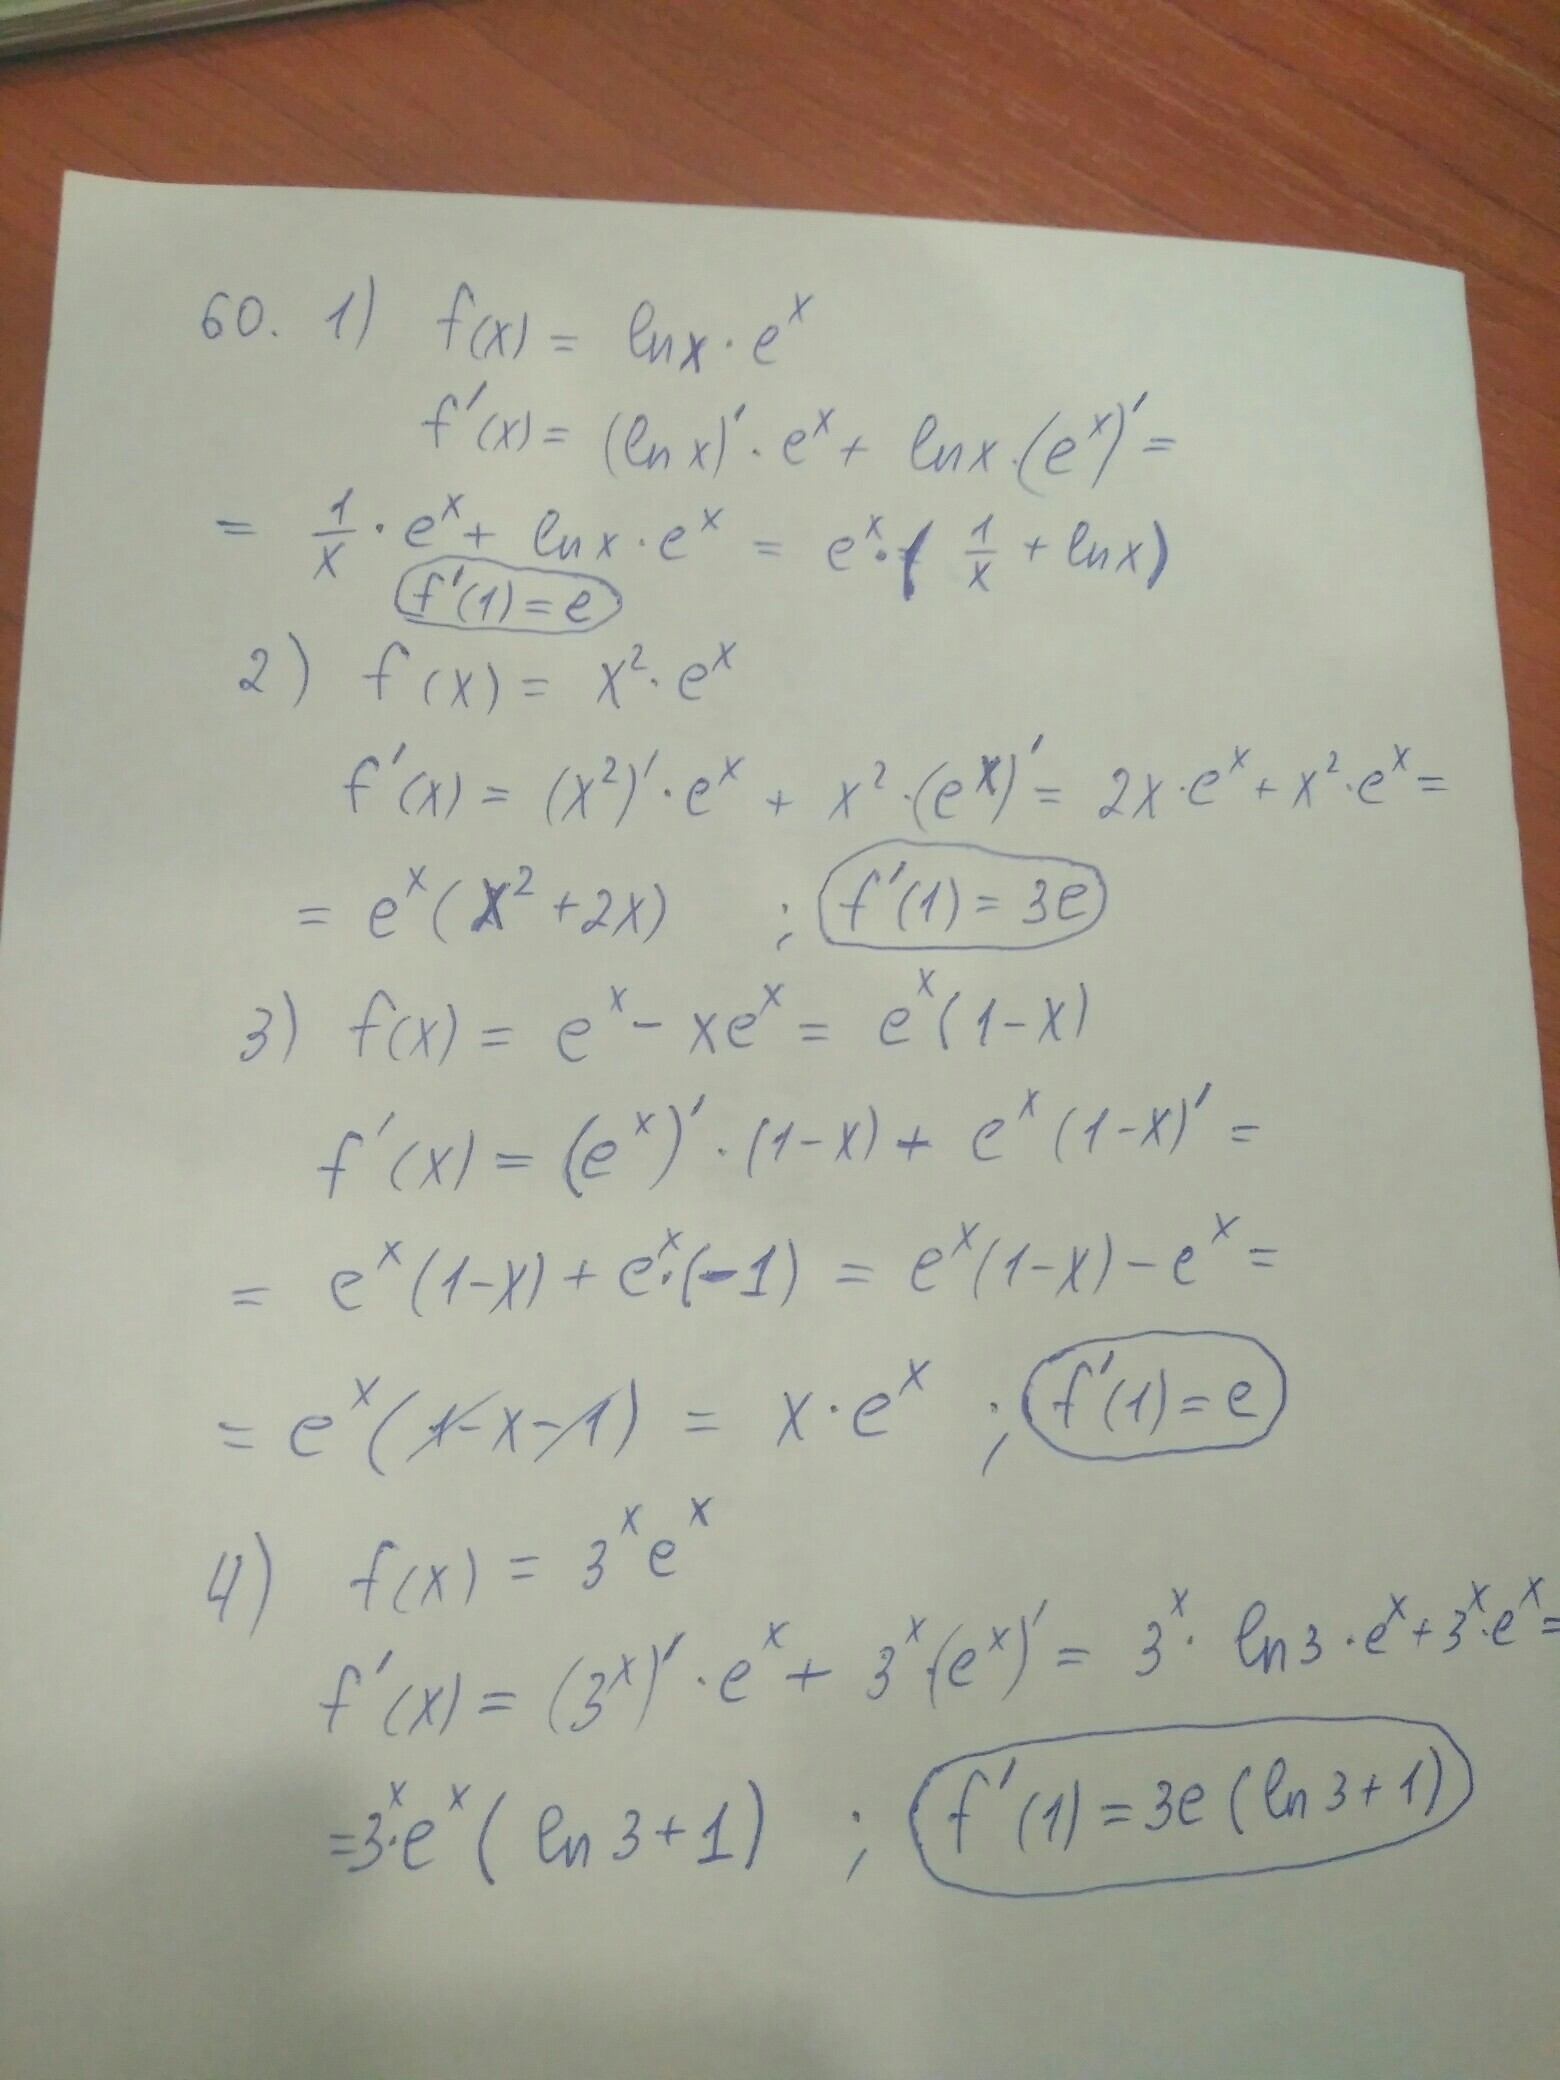 60. 1) f(x) = ln x · e^x
f'(x) = (ln x)' · e^x + ln x · (e^x)' =
= 1/x · e^x + ln x · e^x = e^x · (1/x + ln x)
f'(1) = e
2) f(x) = x² · e^x
f'(x) = (x²)' · e^x + x² · (e^x)' = 2x · e^x + x² · e^x =
= e^x (x² + 2x) ; f'(1) = 3e
3) f(x) = e^x - xe^x = e^x (1-x)
f'(x) = (e^x)' · (1-x) + e^x (1-x)' =
= e^x (1-x) + e^x · (-1) = e^x (1-x) - e^x =
= e^x (1-x-1) = x · e^x ; f'(1) = e
4) f(x) = 3^x e^x
f'(x) = (3^x)' · e^x + 3^x · (e^x)' = 3^x · ln 3 · e^x + 3^x · e^x =
= 3^x · e^x (ln 3 + 1) ; f'(1) = 3e (ln 3 + 1)